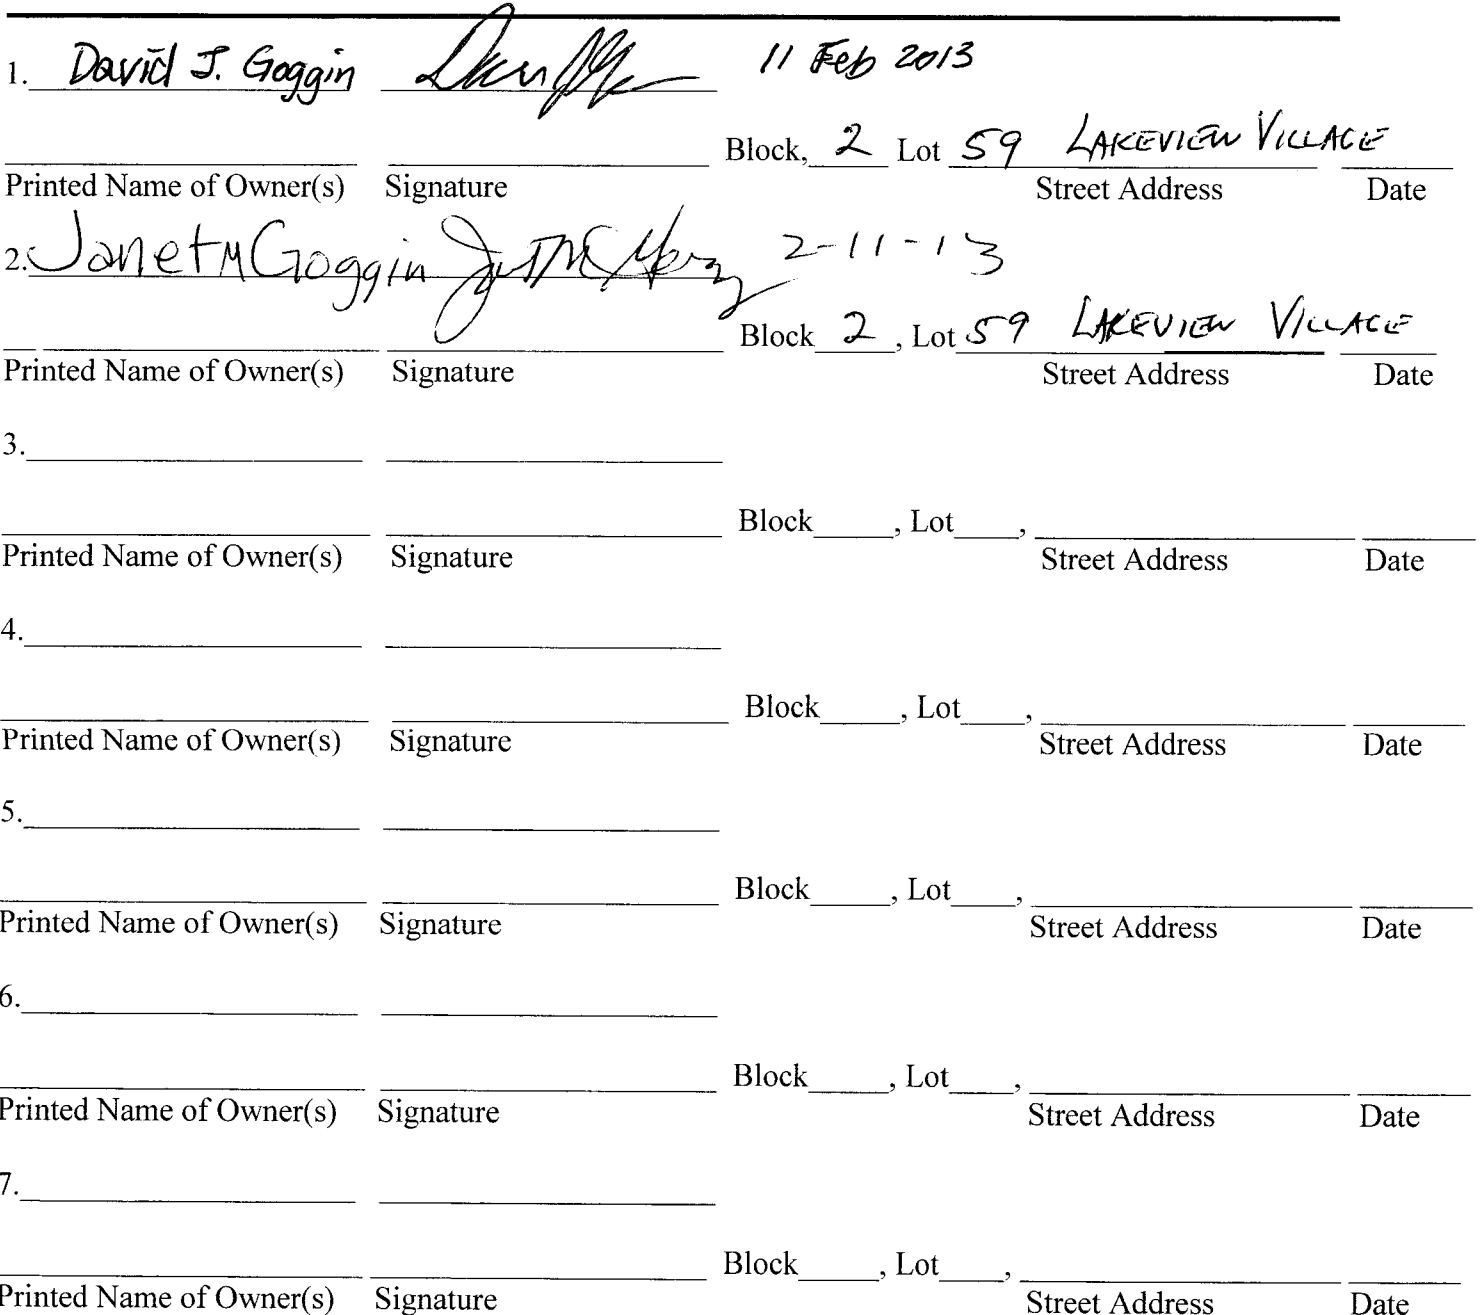 1. David J. Goggin 11 Feb 2013
Block, 2 Lot 59 LAKEVIEW VILLAGE
Printed Name of Owner(s) Signature Street Address Date
2. Janet M Goggin 2-11-13
Block 2, Lot 59 LAKEVIEW VILLAGE
Printed Name of Owner(s) Signature Street Address Date
3.
Block____, Lot____,
Printed Name of Owner(s) Signature Street Address Date
4.
Block____, Lot____,
Printed Name of Owner(s) Signature Street Address Date
5.
Block____, Lot____,
Printed Name of Owner(s) Signature Street Address Date
6.
Block____, Lot____,
Printed Name of Owner(s) Signature Street Address Date
7.
Block____, Lot____,
Printed Name of Owner(s) Signature Street Address Date